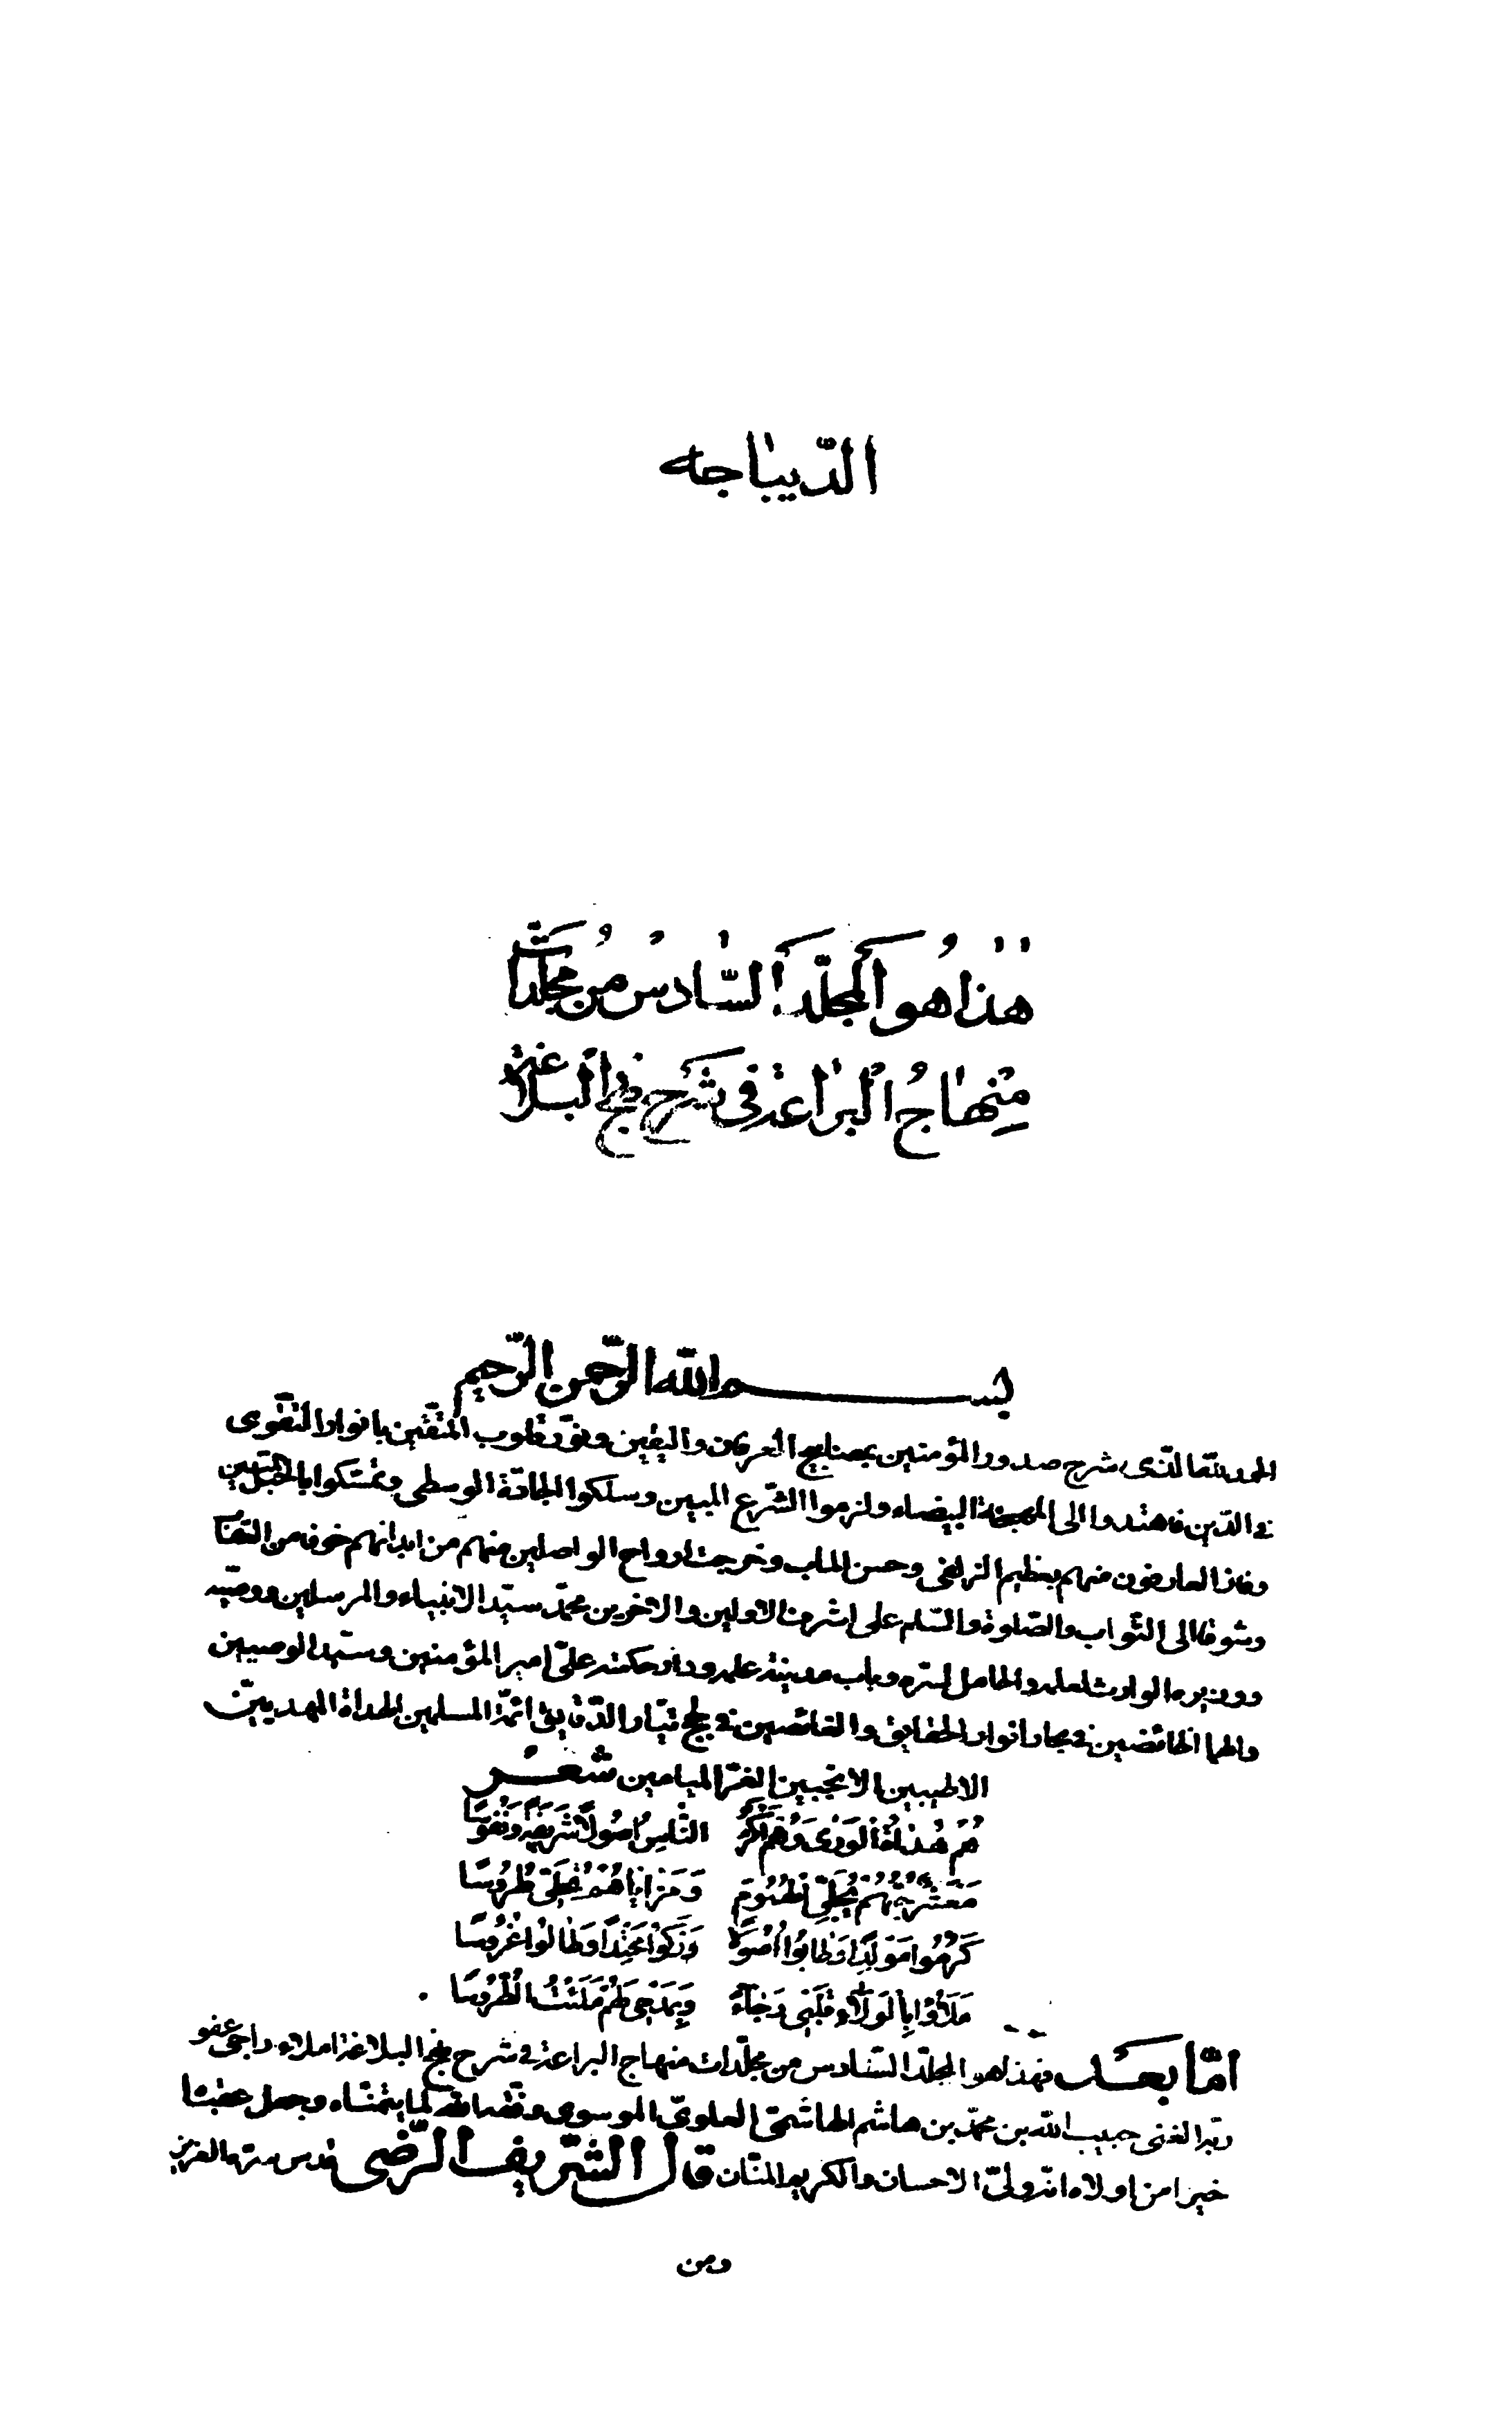 الدّيباجه
هذا هو المجلّد السّادس من مجلّدات
منهاج البراعة في شرح نهج البلاغة
بسم الله الرّحمن الرّحيم
الحمد للّه الّذى شرح صدور المؤمنين بمصابيح العرفان واليقين ونوّر قلوب المتّقين بانوار التّقوى
في الدّين فاهتدوا الى المحجّة البيضاء ولزموا الشّرع المبين وسلكوا الجادّة الوسطى وتمسّكوا بالحبل المتين
وفاز العارفون منهم بعظيم الزلفى وحسن المآب وخرجت ارواح الواصلين منهم من ابدانهم خوفا من العقاب
وشوقا الى الثّواب والصّلوة والسّلم على اشرف الاولين والاخرين محمّد سيّد الانبياء والمرسلين ووصيّه
ووزيره الوارث لعلمه والحامل لسرّه وباب مدينة علمه ودار حكمته علىّ امير المؤمنين وسيّد الوصيين
والهما الخائضين في بحار انوار الحقايق والغائصين في لجج تيّار الدّقايق ائمّة المسلمين الهداة المهديّين
الاطيبين الانجبين الغرّ الميامين شعر
هُم هُداةُ الوَرى وَهُم اَكرَمُ النّاسِ اُصُولًا شَريفَةً ونُفوسًا
مَعْشَرٌ حُبُّهُم يُجَلّي الهُمُومَ وَمَزاياهُمُ تُحَلّى طُرُوسًا
كَرُمُوا مَولِدًا وَطابُوا اُصُولًا وَزَكَوْا مَحْتِدًا وَطالُوا غُرُوسًا
مَلَاؤُا بِالوَلاءِ قَلْبي رَجاءً وَبِمَدْحي لَهُم مَلَئْتُ الطُّرُوسَا
امّا بعد فهذا هو المجلّد السّادس من مجلّدات منهاج البراعة في شرح نهج البلاغة املاء راجى عفو
ربّه الغنى حبيب اللّه بن محمّد بن هاشم الهاشمىّ العلوىّ الموسوى وفّقه اللّه لما يتمنّاه وجعل عقباه
خيرا من اولاه انّه ولىّ الاحسان والكريم المنّان قال الشّريف الرّضى قدس سرّه العزيز
ومن